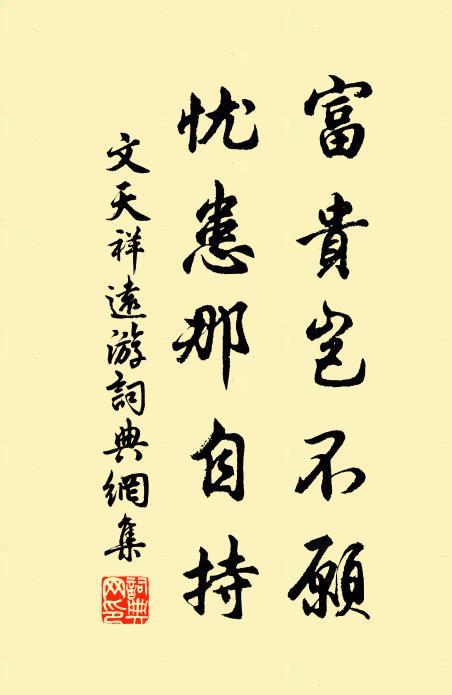 富貴岂不願
忧患那自持
文天祥遠游詞典網集
詞典網印